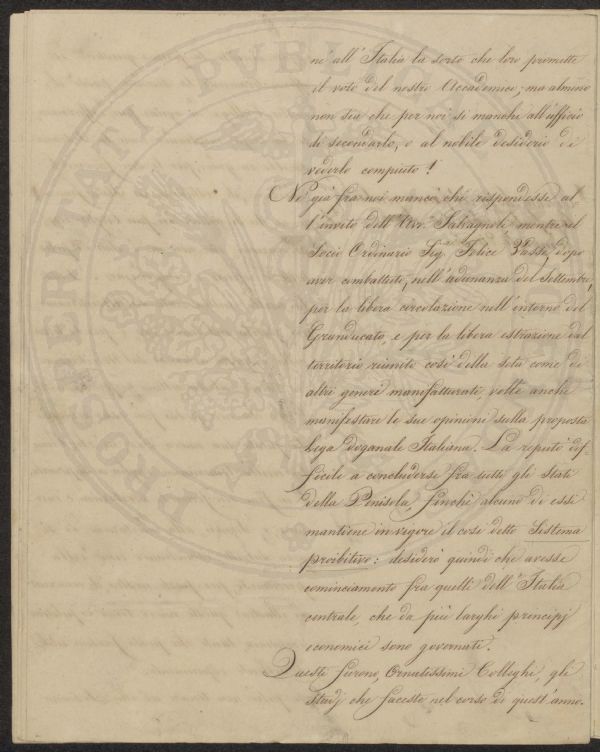 nè all'Italia la sorte che loro promette
il voto del nostro Accademico; ma almeno
non sia che per noi si manchi all'ufficio
di secondarlo, o al nobile desiderio di
vederlo compiuto!
Nè già fra noi mancò chi rispondesse al
l'invito dell'Avv. Salvagnoli, mentre il
Socio Ordinario Sig. Felice Vasse, dopo
aver combattuto, nell'adunanza del Settembre,
per la libera circolazione nell'interno del
Granducato, e per la libera estrazione dal
territorio riunito così della seta come di
altri generi manifatturati, volle anche
manifestare le sue opinioni sulla proposta
Lega doganale Italiana. La reputò dif-
ficile a concludersi fra tutti gli Stati
della Penisola, finchè alcuno di essi
mantiene in vigore il così detto Sistema
proibitivo: desiderò quindi che avesse
cominciamento fra quelli dell'Italia
centrale, che da più larghi principj
economici sono governati.
Questi furono, Ornatissimi Colleghi, gli
Studj che faceste nel corso di quest'anno.
PROSPERITATI PVBLICAE